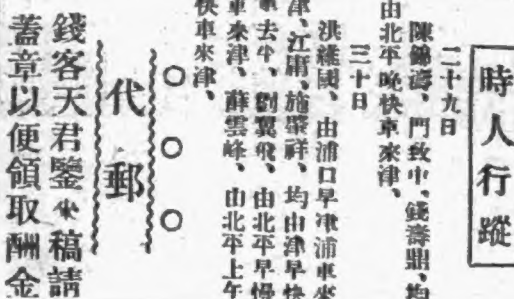 時人行蹤
二十九日
陳錦濤、門致中、錢壽鼎、均
由北平晚快車來津、
三十日
洪維國、由浦口早津浦車來
津、江庸、施肇祥、均由津早快
車去平、劉翼飛、由北平早慢
車來津、薛雲峰、由北平上午
快車來津、
○○○
代郵
錢客天君鑒來稿請
蓋章以便領取酬金